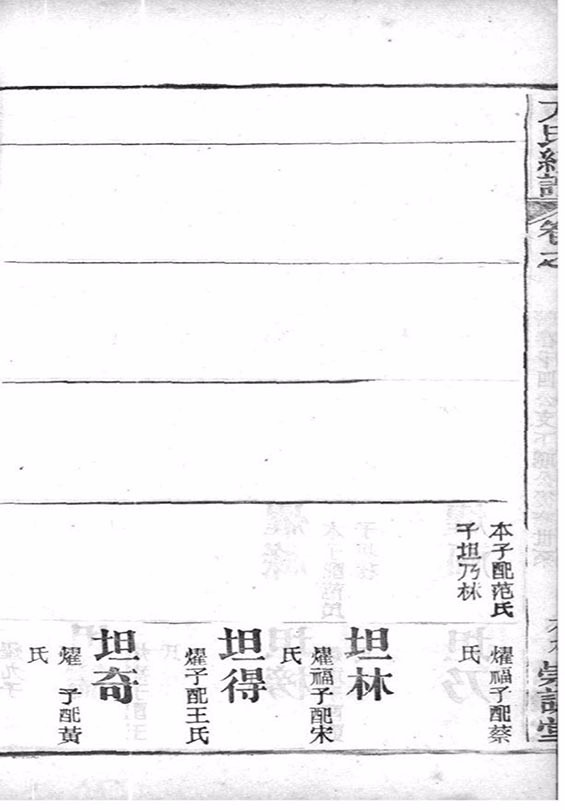 卷之
本子配范氏
子坦乃林
燿福子配蔡
氏
坦林
燿福子配宋
氏
坦得
燿子配王氏
坦奇
燿 子配黃
氏